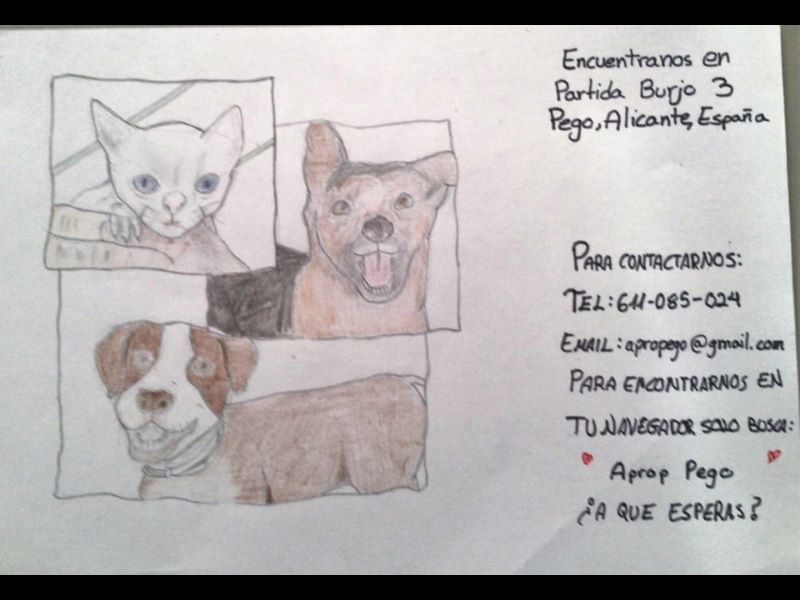 Encuentranos en
Partida Burjo 3
Pego, Alicante, España
PARA CONTACTARNOS:
TEL: 611-085-024
EMAIL: apropego@gmail.com
PARA ENCONTRARNOS EN
TU NAVEGADOR SOLO BUSCA:
Aprop Pego
¿A QUE ESPERAS?